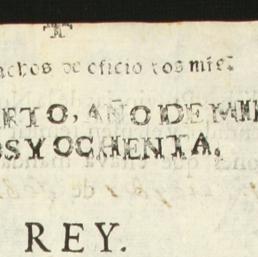 achos de oficio dos mrs:
RTO, AÑO DE MIL
OS Y OCHENTA.
REY.